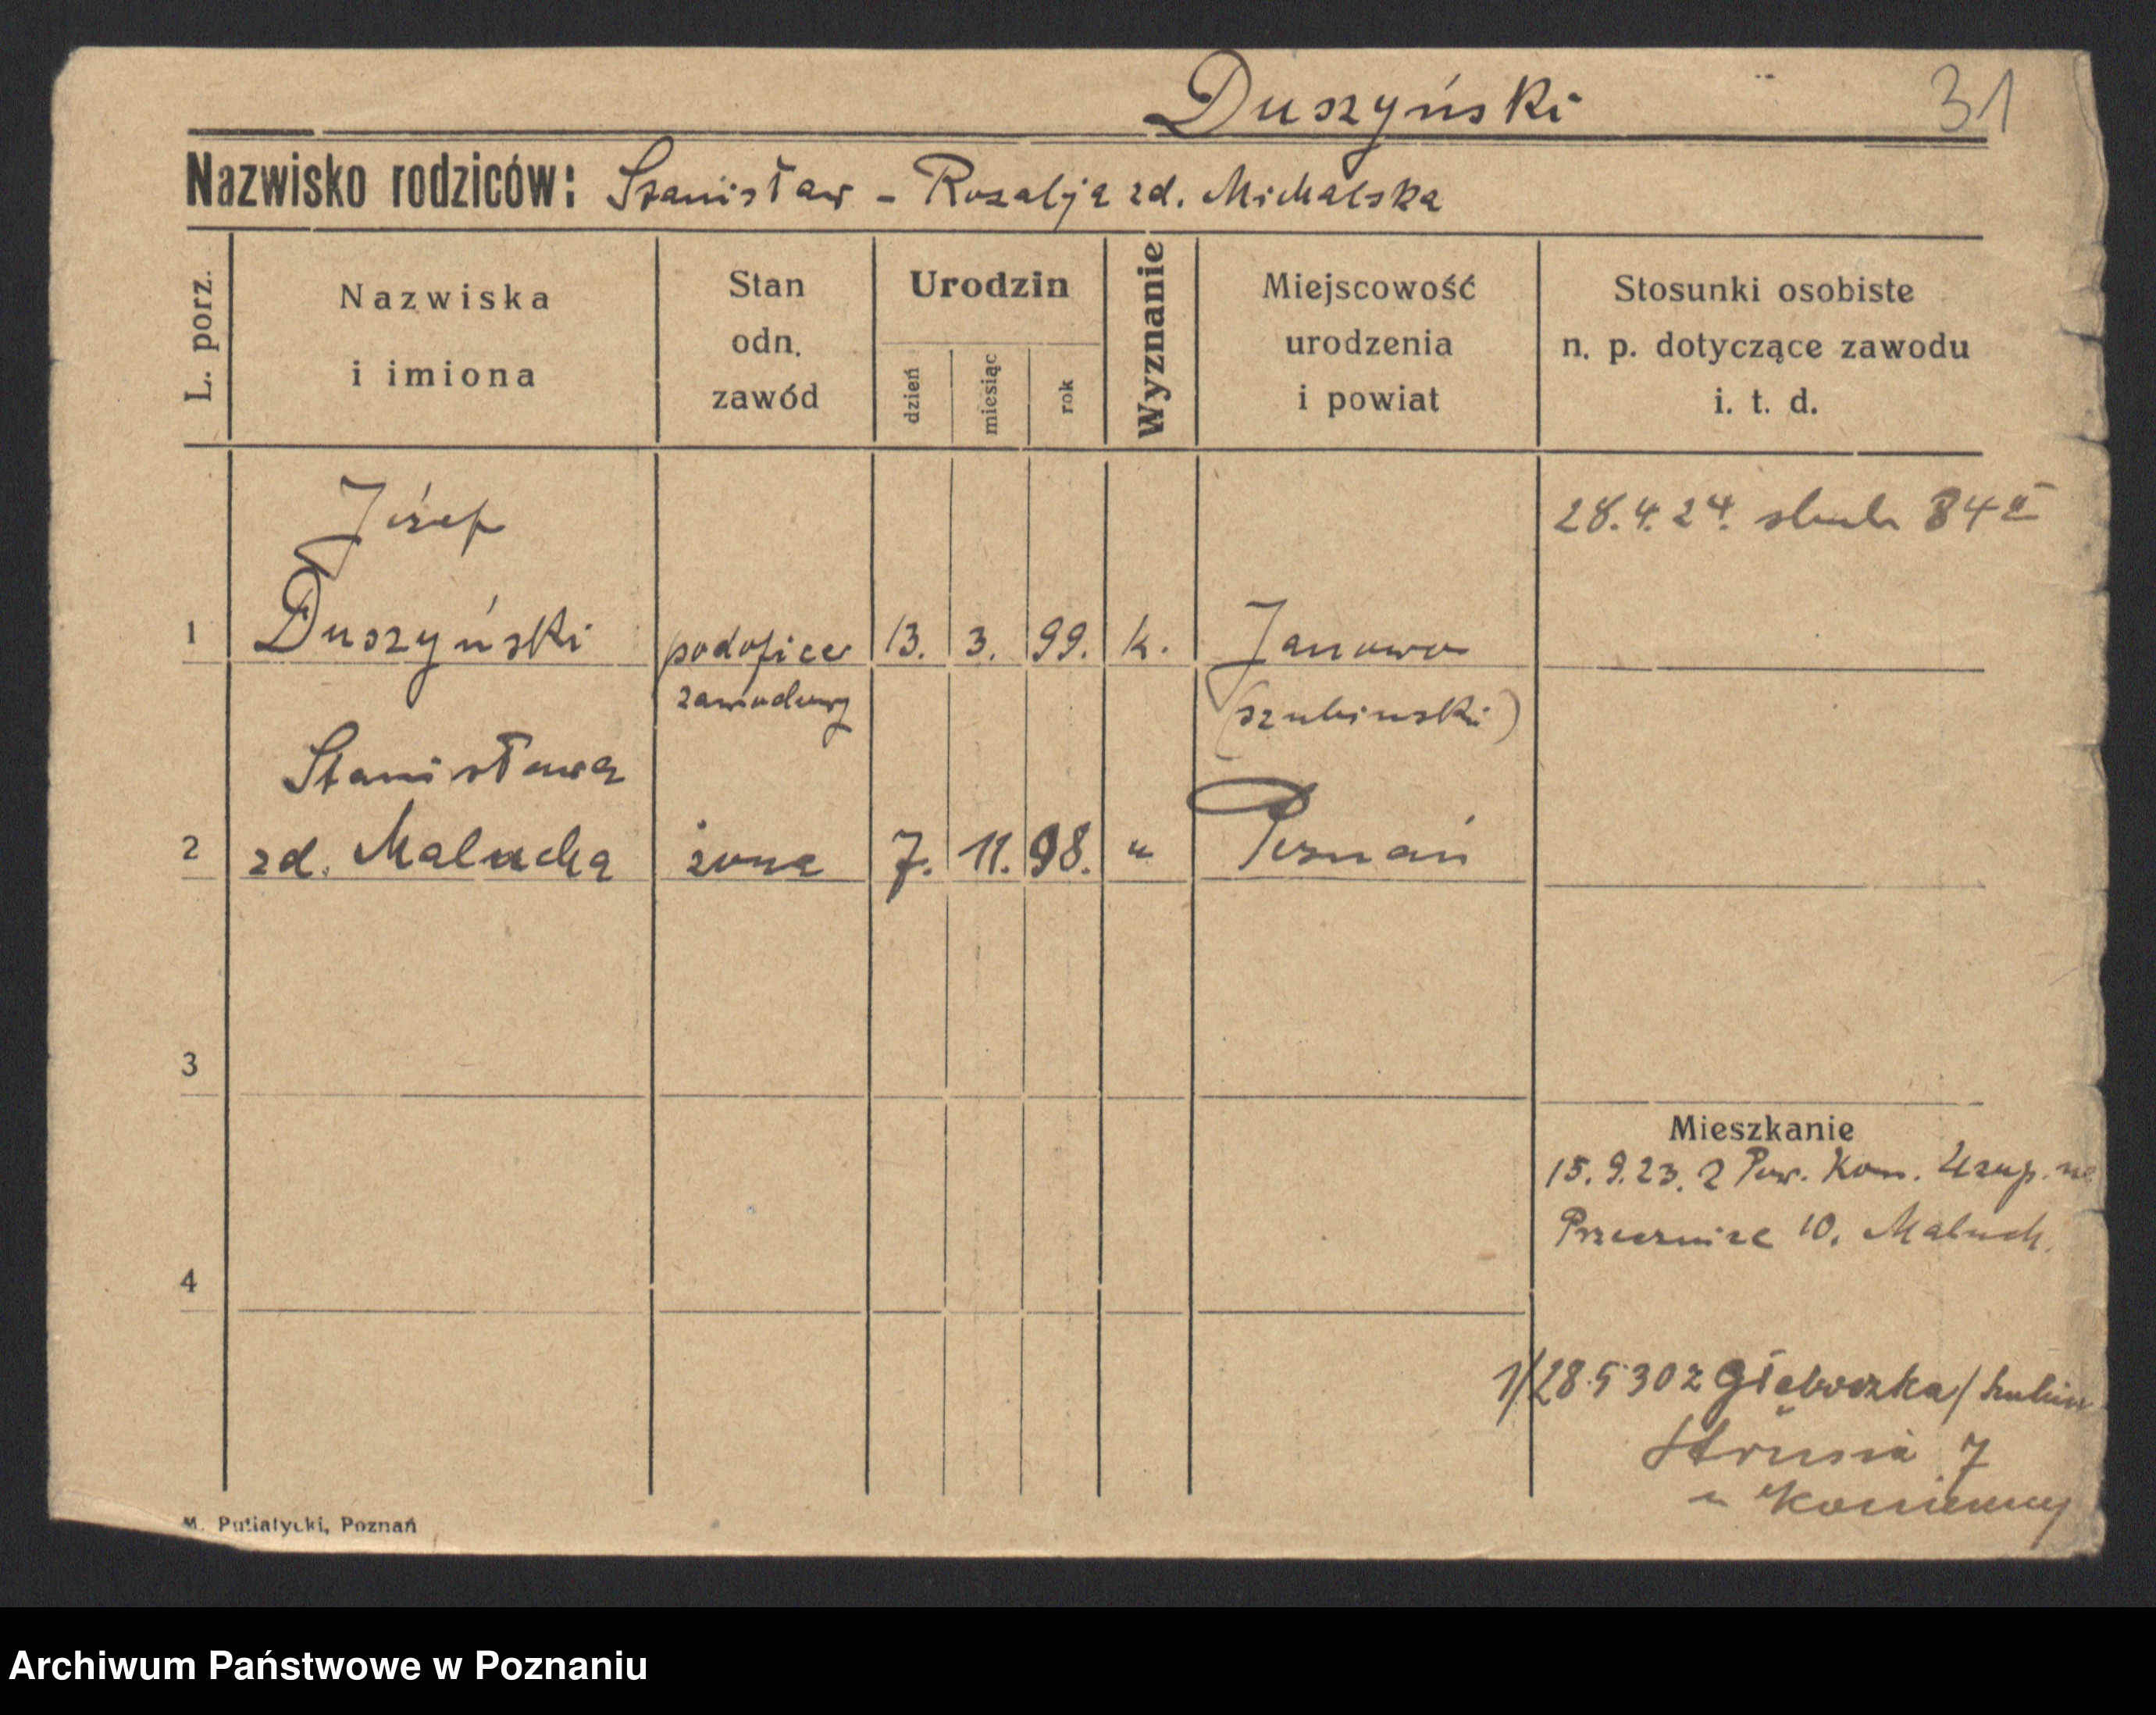 Duszyński
31
Nazwisko rodziców: Stanisław - Rozalja zd. Michalska
L. porz.
Nazwiska
i imiona
Stan
odn.
zawód
Urodzin
dzień
miesiąc
rok
Wyznanie
Miejscowość
urodzenia
i powiat
Stosunki osobiste
n. p. dotyczące zawodu
i. t. d.
Józef
28.4.24. 84
1 Duszyński podoficer 13. 3. 99. k. Janowo
zawodowy (szubinski)
Stanisława
2 zd. Malucha żona 7. 11. 98. " Poznań
3
Mieszkanie
15.9.23. 2 Pow. Kom. Uzup. na
10. Maluch.
4
1/28.5 30 z Głęboczka/Szubin
Strusia 7
u
M. Putiatycki, Poznań
Archiwum Państwowe w Poznaniu